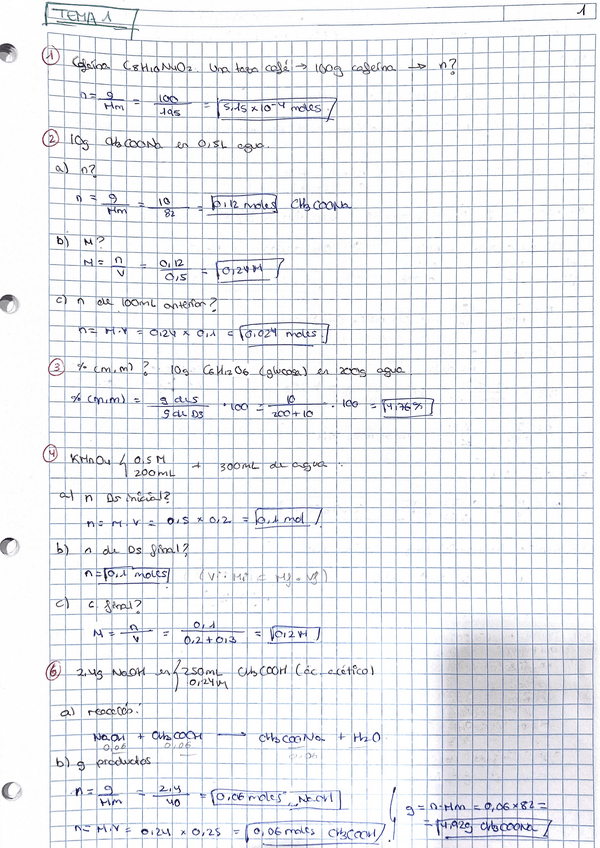 TEMA 1
1
① Cafeína C8H10N4O2. Una taza café → 100g cafeína → n?
n = g/Mm = 100/195 = 5,15 × 10⁻⁴ moles
② 10g CH3COONa en 0,5L agua.
a) n?
n = g/Mm = 10/82 = 0,12 moles CH3COONa
b) M?
M = n/V = 0,12/0,5 = 0,24M
c) n de 100mL anterior?
n = M·V = 0,24 × 0,1 = 0,024 moles
③ % (m,m)? 10g C6H12O6 (glucosa) en 200g agua.
% (m,m) = g de S/g de DS · 100 = 10/200+10 · 100 = 4,76%
④ KMnO4 { 0,5M
200mL + 300mL de agua.
a) n DS inicial?
n = M·V = 0,5 × 0,2 = 0,1 mol
b) n de DS final?
n = 0,1 moles (Vi · Mi = Mf · Vf)
c) c. final?
M = n/V = 0,1/0,2+0,3 = 0,2M
⑥ 2,4g NaOH en { 250mL CH3COOH (ác. acético)
0,24M
a) reacción:
NaOH + CH3COOH → CH3COONa + H2O
0,06 0,06 0,06
b) g productos
n = g/Mm = 2,4/40 = 0,06 moles NaOH
n = M·V = 0,24 × 0,25 = 0,06 moles CH3COOH
g = n·Mm = 0,06 × 82 =
= 4,92g CH3COONa